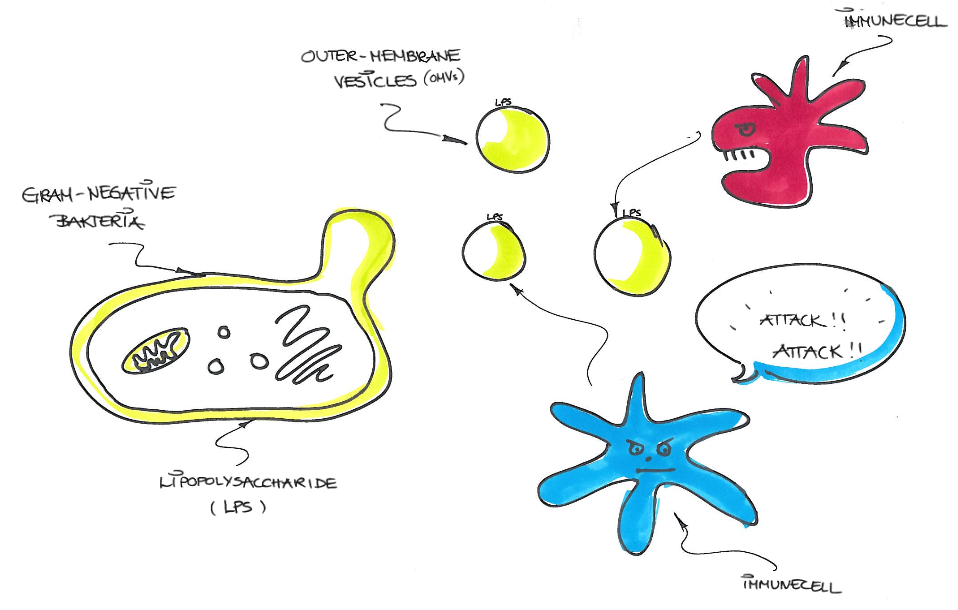 IMMUNECELL
OUTER-MEMBRANE
VESICLES (OMVs)
LPS
GRAM-NEGATIVE
BAKTERIA
LPS
LPS
ATTACK!!
ATTACK!!
LIPOPOLYSACCHARIDE
(LPS)
IMMUNECELL